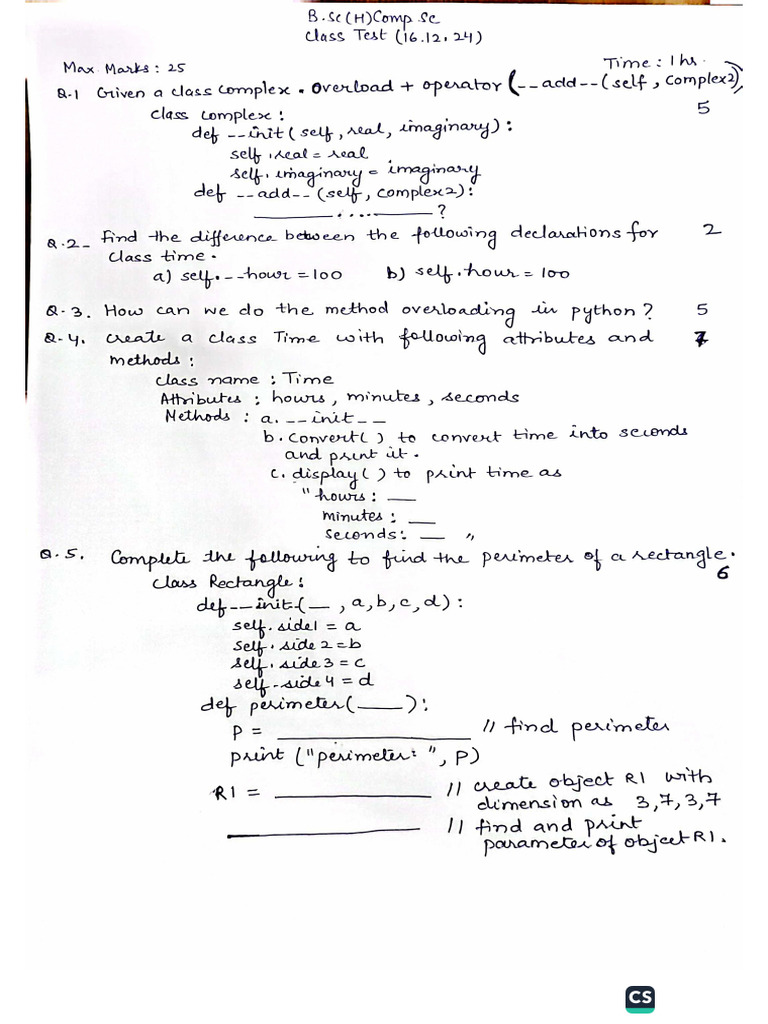 B.Sc(H)Comp Sc
Class Test (16.12.24)
Max Marks: 25 Time: 1 hr.
Q.1 Given a class complex. Overload + operator (__add__(self, complex2))
class complex: 5
def __init(self, real, imaginary):
self.real = real
self.imaginary = imaginary
def __add__(self, complex2):
________....________?
Q.2- Find the difference between the following declarations for 2
class time.
a) self.__hour = 100 b) self.hour = 100
Q.3. How can we do the method overloading in python? 5
Q.4. Create a class Time with following attributes and 7
methods:
class name: Time
Attributes: hours, minutes, seconds
Methods: a. __init__
b. convert( ) to convert time into seconds
and print it.
c. display( ) to print time as
"hours: __
minutes: __
seconds: __ "
Q.5. Complete the following to find the perimeter of a rectangle.
class Rectangle: 6
def __init(__, a, b, c, d):
self.side1 = a
self.side2 = b
self.side3 = c
self.side4 = d
def perimeter(____):
P = ____________ // find perimeter
print ("perimeter: ", P)
R1 = ____________ // create object R1 with
dimension as 3,7,3,7
____________ // find and print
parameter of object R1.
CS